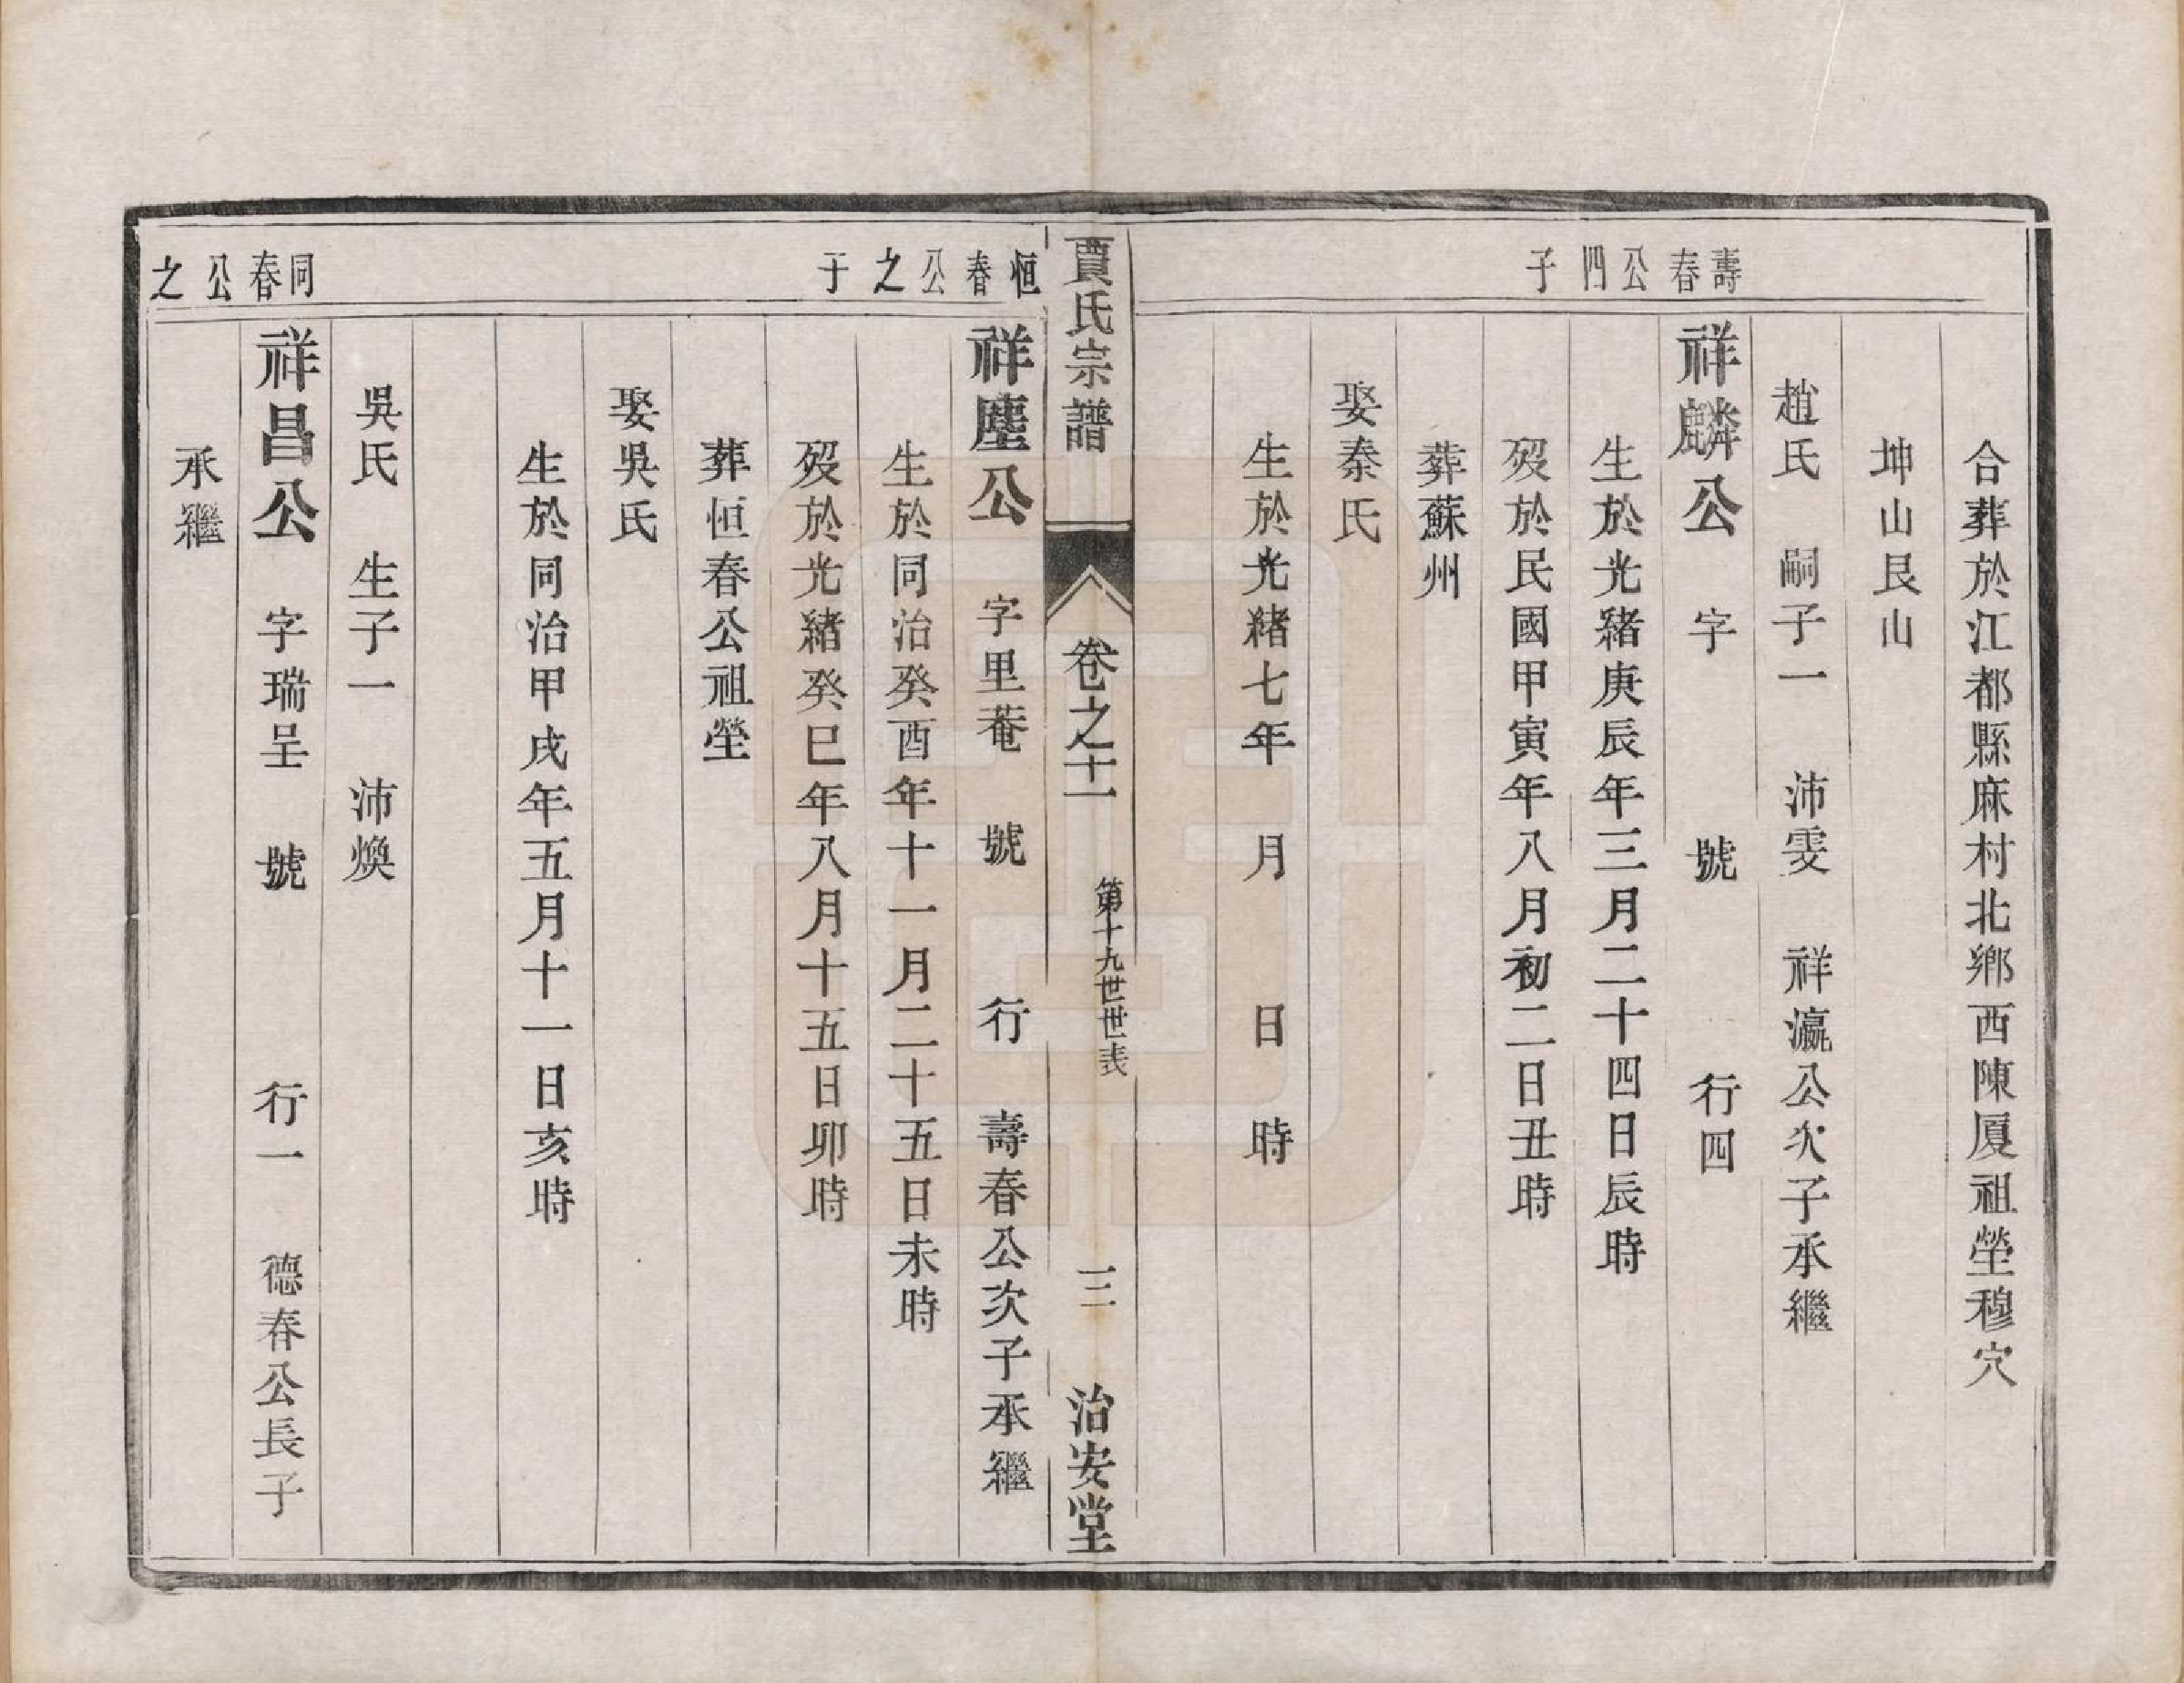 合葬於江都縣麻村北鄉西陳厦祖塋穆穴
坤山艮山
趙氏 嗣子一 沛雯 祥瀛公次子承繼
壽春公四子
祥麟公 字 號 行四
生於光緒庚辰年三月二十四日辰時
歿於民國甲寅年八月初二日丑時
葬蘇州
娶秦氏
生於光緒七年 月 日 時
賈氏宗譜 卷之十一 第十九世世表 三 治安堂
恒春公之子
祥麈公 字里菴 號 行 壽春公次子承繼
生於同治癸酉年十一月二十五日未時
歿於光緒癸巳年八月十五日卯時
葬恒春公祖塋
娶吳氏
生於同治甲戌年五月十一日亥時
吳氏 生子一 沛煥
同春公之
祥昌公 字瑞呈 號 行一 德春公長子
承繼